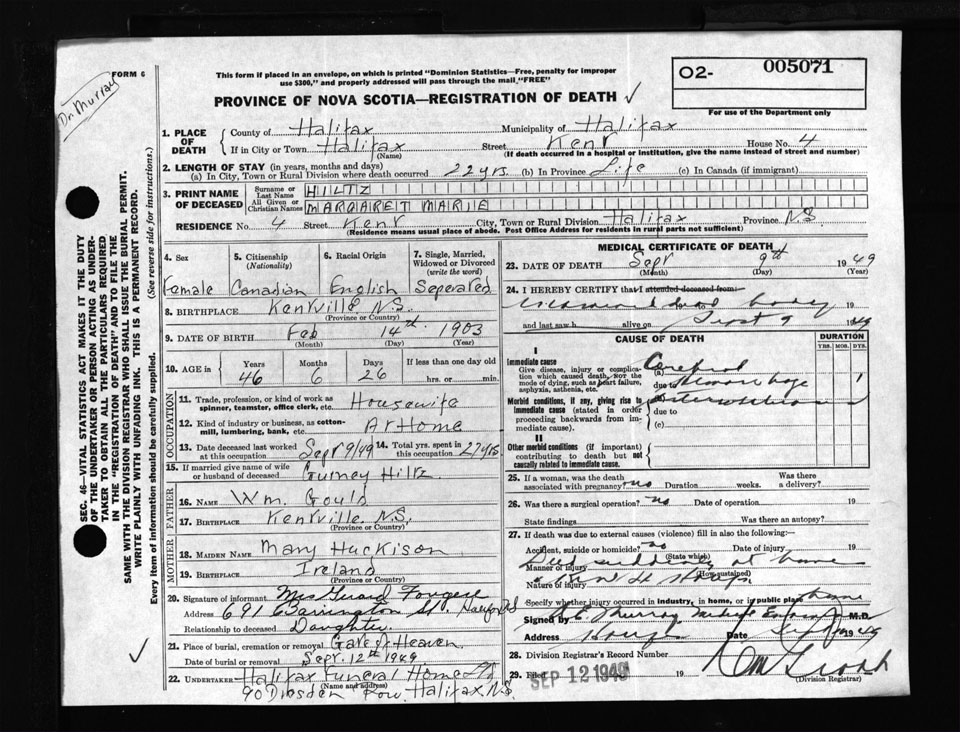 Dr. Murray
FORM 6
This form if placed in an envelope, on which is printed "Dominion Statistics—Free, penalty for improper
use $300," and properly addressed will pass through the mail "FREE"
PROVINCE OF NOVA SCOTIA—REGISTRATION OF DEATH ✓
02- 005071
For use of the Department only
SEC. 46—VITAL STATISTICS ACT MAKES IT THE DUTY
OF THE UNDERTAKER OR PERSON ACTING AS UNDER-
TAKER TO OBTAIN ALL THE PARTICULARS REQUIRED
IN THE "REGISTRATION OF DEATH" AND TO FILE THE
SAME WITH THE DIVISION REGISTRAR WHO SHALL ISSUE THE BURIAL PERMIT.
WRITE PLAINLY WITH UNFADING INK. THIS IS A PERMANENT RECORD.
Every item of information should be carefully supplied. (See reverse side for instructions.)
1. PLACE OF DEATH County of Halifax Municipality of Halifax
If in City or Town Halifax Street Kent House No. 4
(Name) (If death occurred in a hospital or institution, give the name instead of street and number)
2. LENGTH OF STAY (in years, months and days)
(a) In City, Town or Rural Division where death occurred 22 yrs. (b) In Province Life (c) In Canada (if immigrant)
3. PRINT NAME OF DECEASED Surname or Last Name HILTZ
All Given or Christian Names MARGARET MARIE
RESIDENCE No. 4 Street Kent City, Town or Rural Division Halifax Province N.S.
(Residence means usual place of abode. Post Office Address for residents in rural parts not sufficient)
4. Sex 5. Citizenship (Nationality) 6. Racial Origin 7. Single, Married, Widowed or Divorced (write the word)
Female Canadian English Seperated
8. BIRTHPLACE Kentville N.S.
(Province or Country)
9. DATE OF BIRTH Feb 14th 1903
(Month) (Day) (Year)
10. AGE in Years Months Days If less than one day old
46 6 26 hrs. or min.
OCCUPATION
11. Trade, profession, or kind of work as spinner, teamster, office clerk, etc. Housewife
12. Kind of industry or business, as cotton-mill, lumbering, bank, etc. At Home
13. Date deceased last worked at this occupation Sept 9/49 14. Total yrs. spent in this occupation 22 yrs
15. If married give name of wife or husband of deceased Gurney Hiltz
FATHER
16. NAME Wm. Gould
17. BIRTHPLACE Kentville N.S.
(Province or Country)
MOTHER
18. MAIDEN NAME Mary Huckison
19. BIRTHPLACE Ireland
(Province or Country)
20. Signature of informant Mrs Gerard Forgere
Address 691 Barrington St.
Relationship to deceased Daughter
21. Place of burial, cremation or removal Gate of Heaven
Date of burial or removal Sept. 12th 1949
✓
22. UNDERTAKER Halifax Funeral Home Ltd
(Name and address)
90 Dresden Row Halifax N.S.
MEDICAL CERTIFICATE OF DEATH
23. DATE OF DEATH Sept 9th 1949
(Month) (Day) (Year)
24. I HEREBY CERTIFY that I attended deceased from:
dead body 19
and last saw h alive on Sept 9 1949
CAUSE OF DEATH DURATION
YRS. MOS. DYS.
I
Immediate cause
Give disease, injury or complication which caused death, not the mode of dying, such as heart failure, asphyxia, asthenia, etc.
(a) Cerebral
due to Hemorrhage 1
Morbid conditions, if any, giving rise to immediate cause (stated in order proceeding backwards from immediate cause).
(b)
due to
(c)
II
Other morbid conditions (if important) contributing to death but not causally related to immediate cause.
25. If a woman, was the death associated with pregnancy? no Duration weeks. Was there a delivery?
26. Was there a surgical operation? no Date of operation 19
State findings Was there an autopsy?
27. If death was due to external causes (violence) fill in also the following:—
Accident, suicide or homicide? no Date of injury 19
(State which)
Manner of injury Died suddenly at home
(How sustained)
Nature of injury
Specify whether injury occurred in industry, in home, or in public place home
Signed by Murray M.D.
Address Date 1949
28. Division Registrar's Record Number
29. Filed SEP 12 1949 19
(Division Registrar)